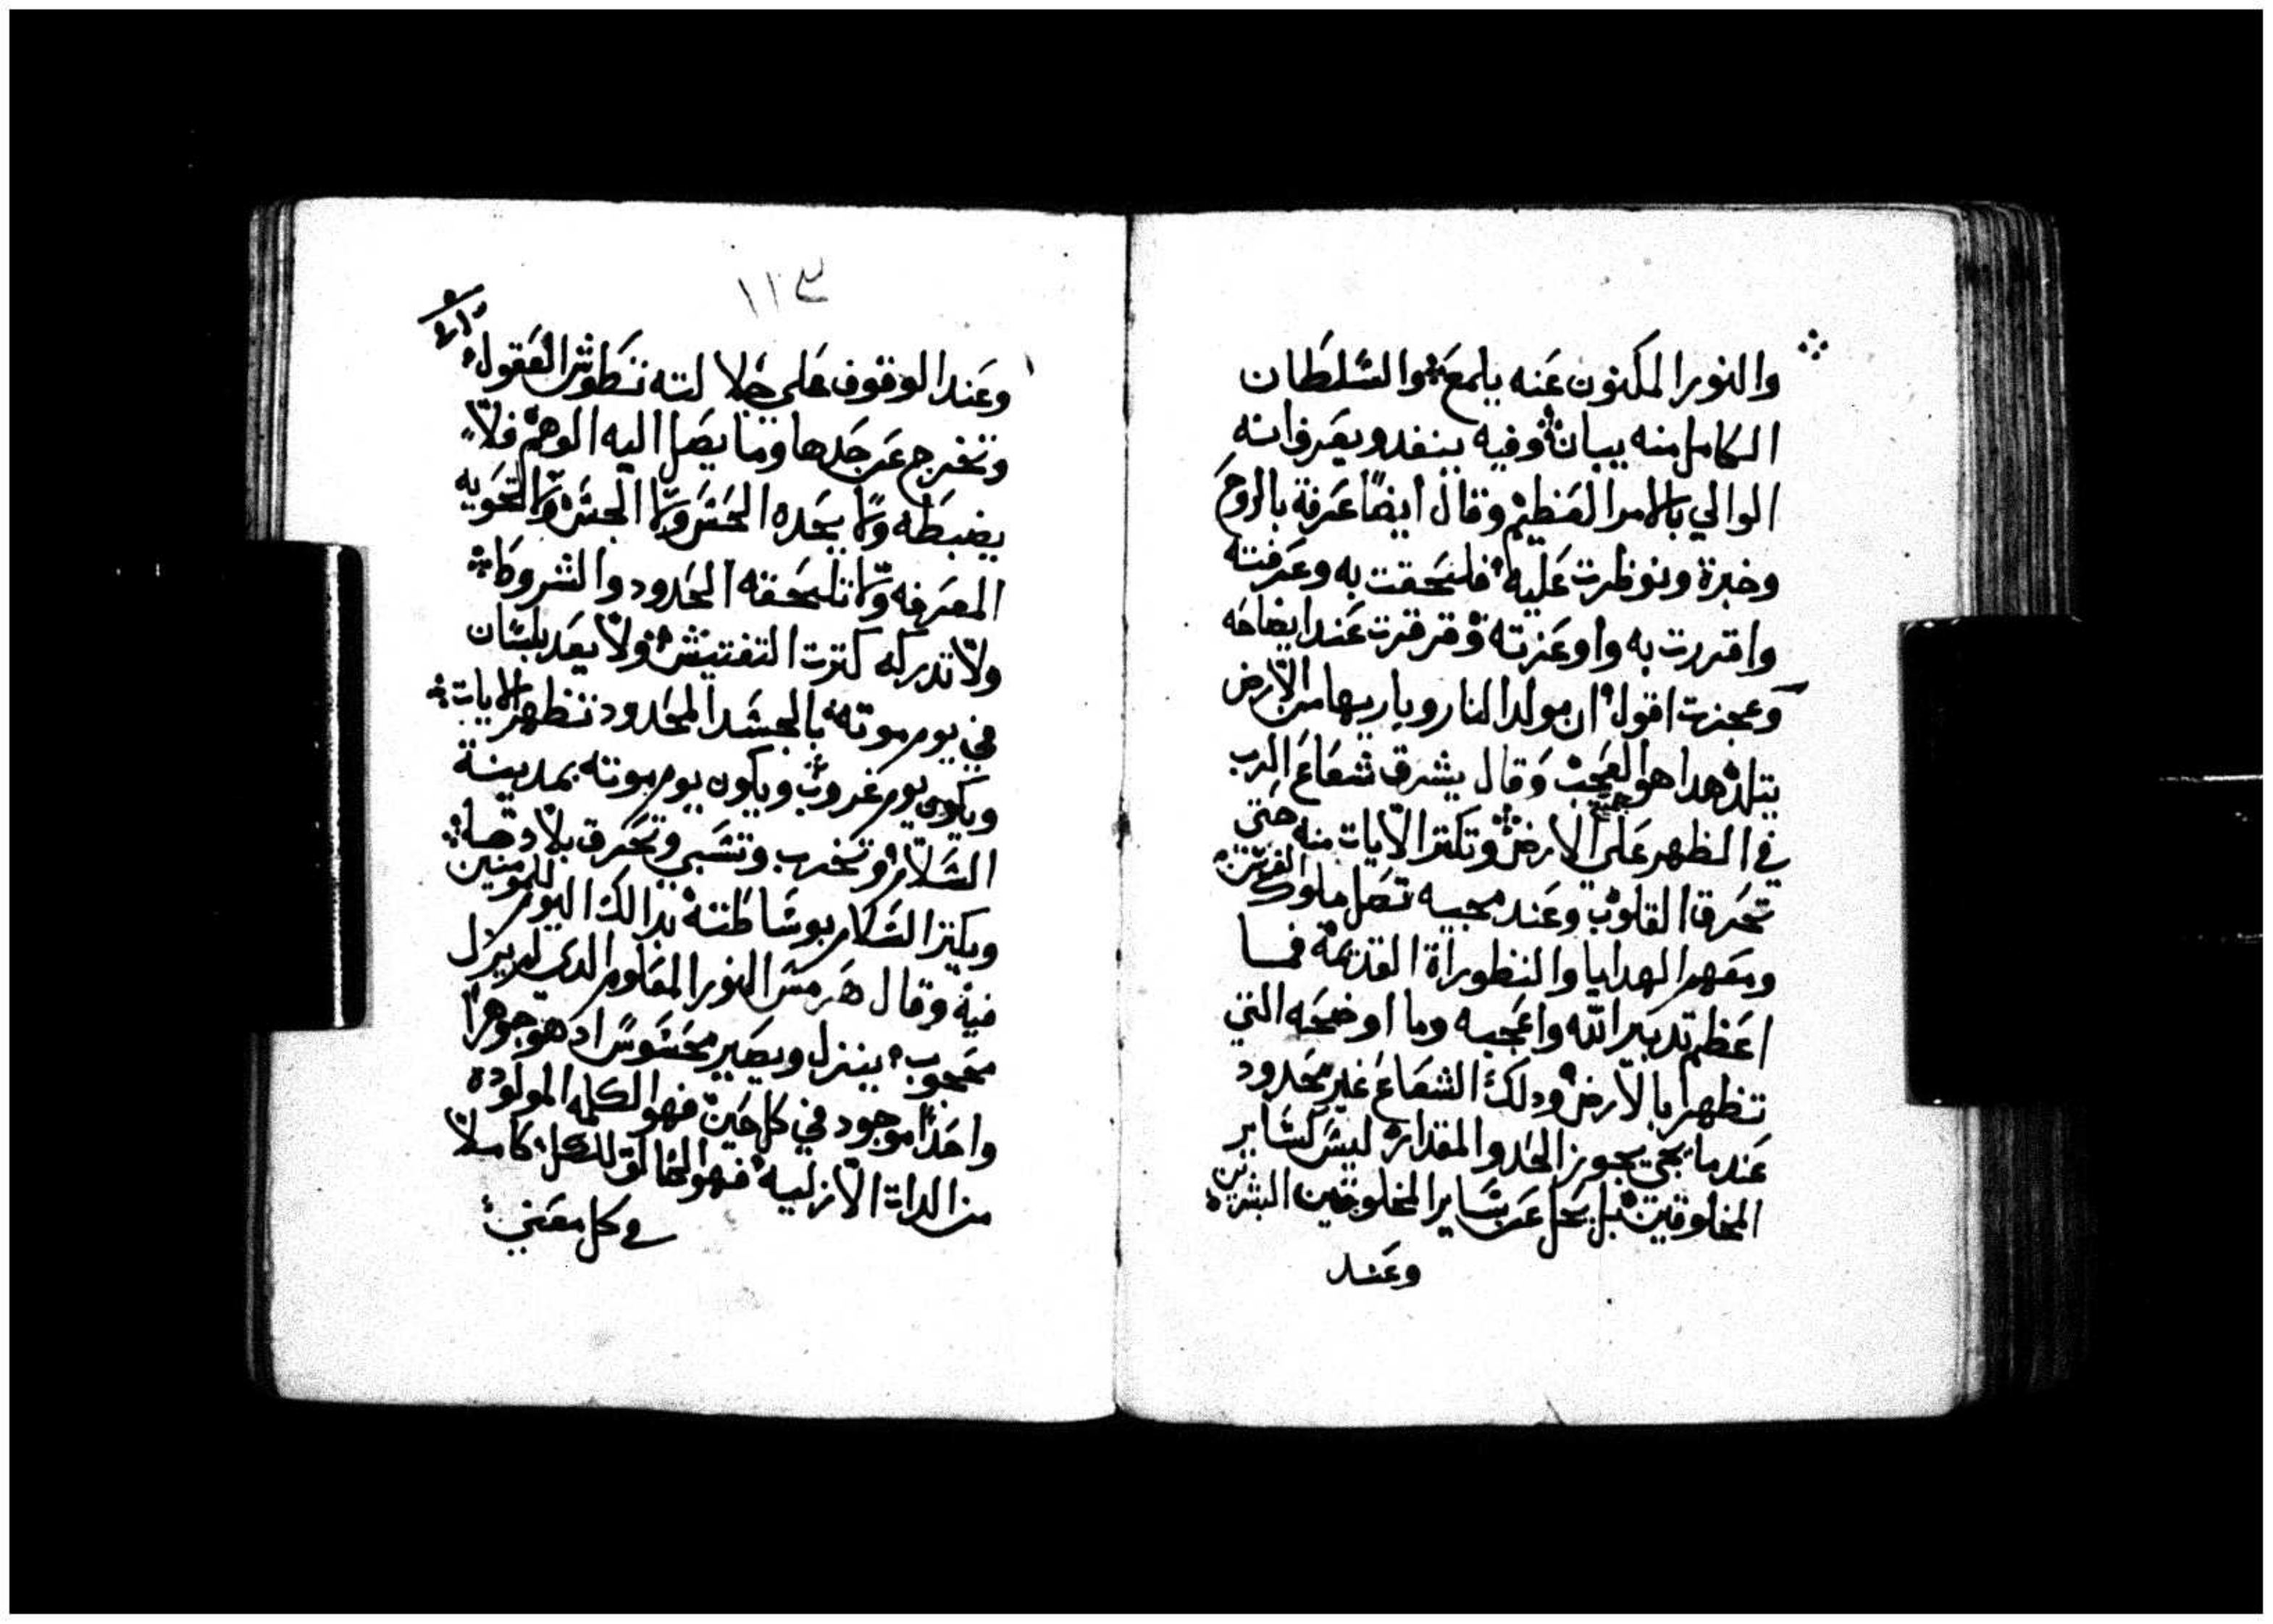 والنور المكنون عنه يلمع والسلطان
الكامل منه يبان وفيه ينفد ويعرف انه
الوالي بالامر العظيم وقال ايضًا عرفة بالروح
وخبرة ونوظرت عليه فلتحقت به وعرفته
واقتررت به واوعزته وقرقرت عند ايضاحه
وعجزت اقول ان مولد النار وباريها من الارض
يتلد هدا هو العجب وقال يشرق شعاع الرب
في الظهر على جميع الارض وتكتر الايات منه حتي
تحرق القلوب وعند مجيه تصل ملوك الفرس
ومعهم الهدايا والنظوراة القديمة فما
اعظم تدبير الله واعجبه وما اوضحه التي
تظهر بالارض ودلك الشعاع غير محدود
عندما يجي يجوز الحد والمقدار ليس كساير
المخلوقين بل يحل عن ساير المخلوقين البشريين
وعند
١١٣
وعند الوقوف على جلالته تطوش العقول
وتخرج عن حدها وما يصل اليه الوهم فلا
يضبطه ولا يحده الحس ولا الجس ولا تحويه
المعرفه ولا تلحقه الحدود والشروط
ولا تدركه كترت التفتيش ولا يعد بلسان
في يوم موته بالجسد المحدود تظهر الايات
ويكون يوم غروب ويكون يوم موته بمدينة
السلام وتخرب وتسبي وتحرق بلادها
ويكتر السلام بوساطته بدالك اليوم للمومنين
فيه وقال هرمس النور المقاوم الدي لم يزل
محجوب ينزل ويصير محسوسًا اد هو جوهرًا
واحدًا موجود في كل حين فهو الكلمه المولوده
من الداة الازليه فهو الخالق للكل كاملاً
في كل معني